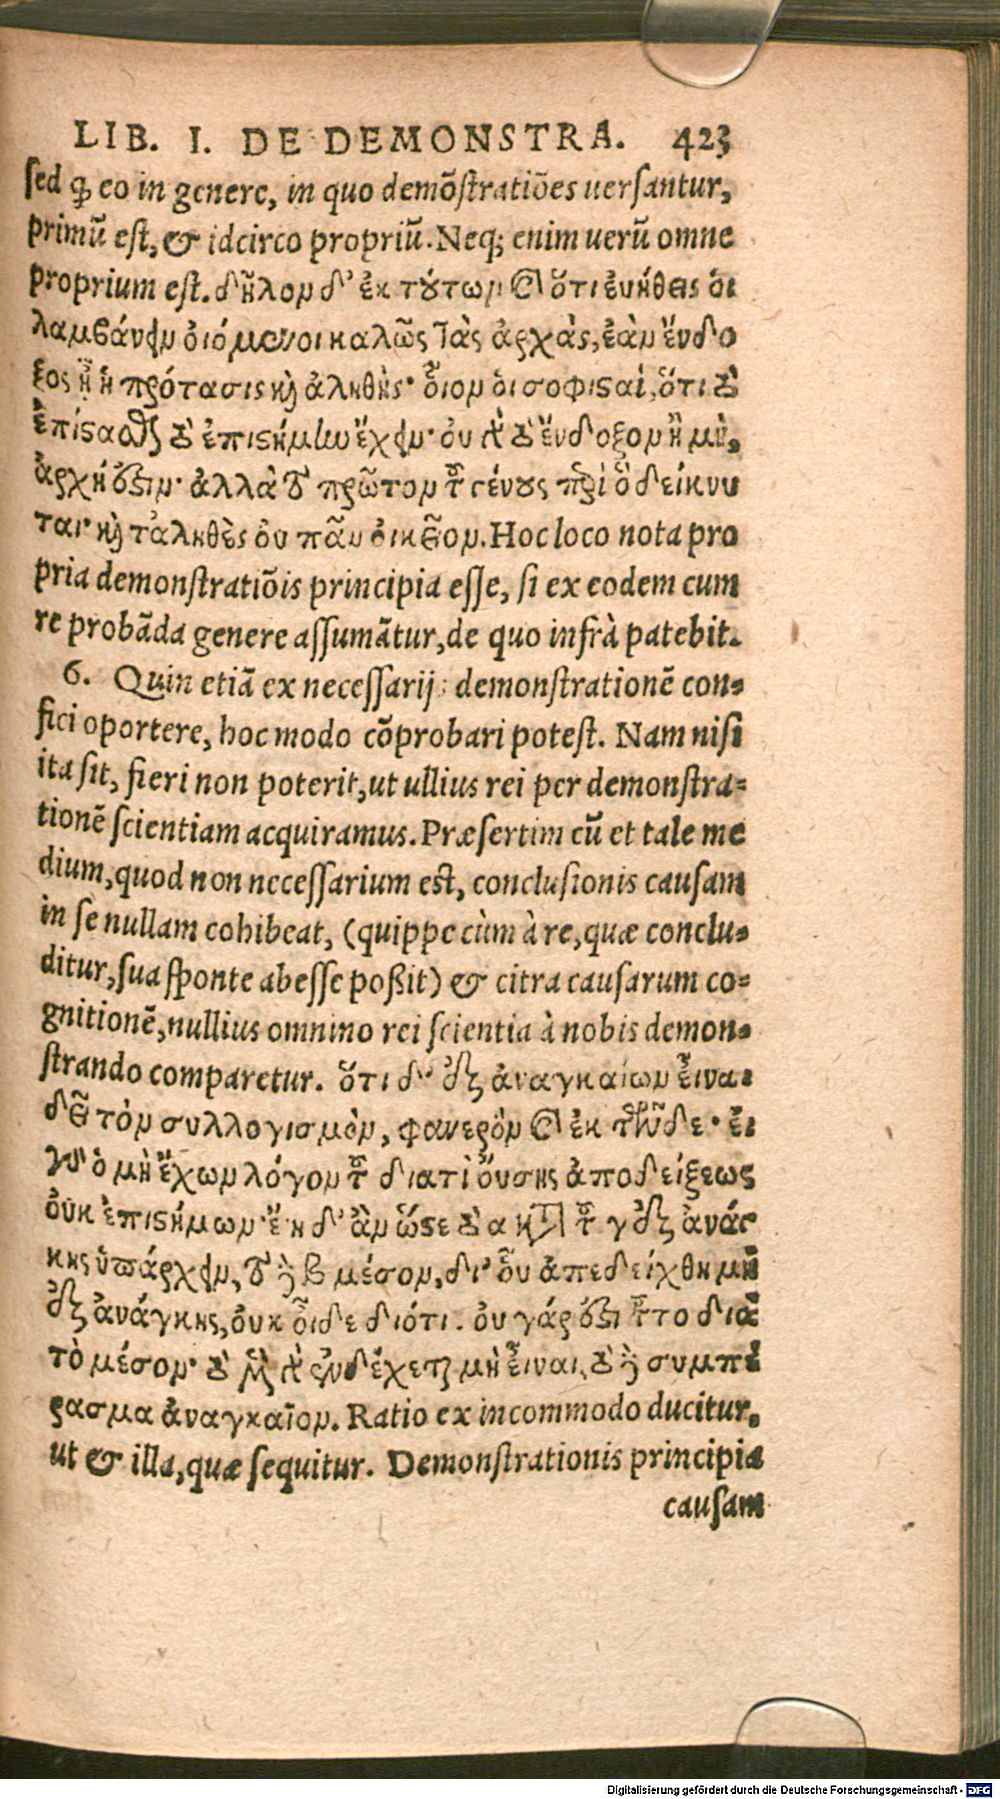 LIB. I. DE DEMONSTRA. 423
sed ꝙ eo in genere, in quo demõstratiões uersantur,
primũ est, & idcirco propriũ. Neq; enim uerũ omne
proprium est. δῆλον δ' ἐκ τούτων καὶ ὅτι ἐυήθεις ὁι
λαμβάνειν ὀιόμενοι καλῶς τὰς ἀρχὰς, ἐὰν ἔνδο
ξος ᾖ ἡ πρότασις καὶ ἀληθὴς· ὅιον ὁι σοφισταὶ, ὅτι τὸ
ἐπίστασθαι τὸ ἐπιστήμην ἔχειν· ὀυ γὰρ τὸ ἔνδοξον ἢ μὴ,
ἀρχή ἐστιν· ἀλλὰ τὸ πρῶτον τοῦ γένους περὶ ὃ δείκνυ
ται· καὶ τἀληθὲς ὀυ πᾶν ὀικεῖον. Hoc loco nota pro
pria demonstratiõis principia esse, si ex eodem cum
re probãda genere assumãtur, de quo infrà patebit.
6. Quin etiã ex necessarijs demonstrationẽ con-
fici oportere, hoc modo cõprobari potest. Nam nisi
ita sit, fieri non poterit, ut ullius rei per demonstra-
tionẽ scientiam acquiramus. Præsertim cũ et tale me
dium, quod non necessarium est, conclusionis causam
in se nullam cohibeat, (quippe cùm à re, quæ conclu-
ditur, sua sponte abesse poßit) & citra causarum co-
gnitionẽ, nullius omnino rei scientia à nobis demon-
strando comparetur. ὅτι δ' ἐξ ἀναγκαίων εἶναι
δεῖ τὸν συλλογισμὸν, φανερὸν καὶ ἐκ τῶνδε· ἐι
γὰρ ὁ μὴ ἔχων λόγον τοῦ διατὶ ὄυσης ἀποδείξεως
ὀυκ ἐπιστήμων· ἔιη δ' ἂν ὥστε τὸ α κατὰ τοῦ γ ἐξ ἀνάγ
κης ὑπάρχειν, τὸ δὲ β μέσον, δι' ὅυ ἀπεδείχθη μὴ
ἐξ ἀνάγκης, ὀυκ ὅιδε διότι. ὀυ γάρ ἐστι τοῦτο διὰ
τὸ μέσον· τὸ μὲν γὰρ ἐνδέχεται μὴ εἶναι, τὸ δὲ συμπέ
ρασμα ἀναγκαῖον. Ratio ex incommodo ducitur,
ut & illa, quæ sequitur. Demonstrationis principia
causam
Digitalisierung gefördert durch die Deutsche Forschungsgemeinschaft - DFG